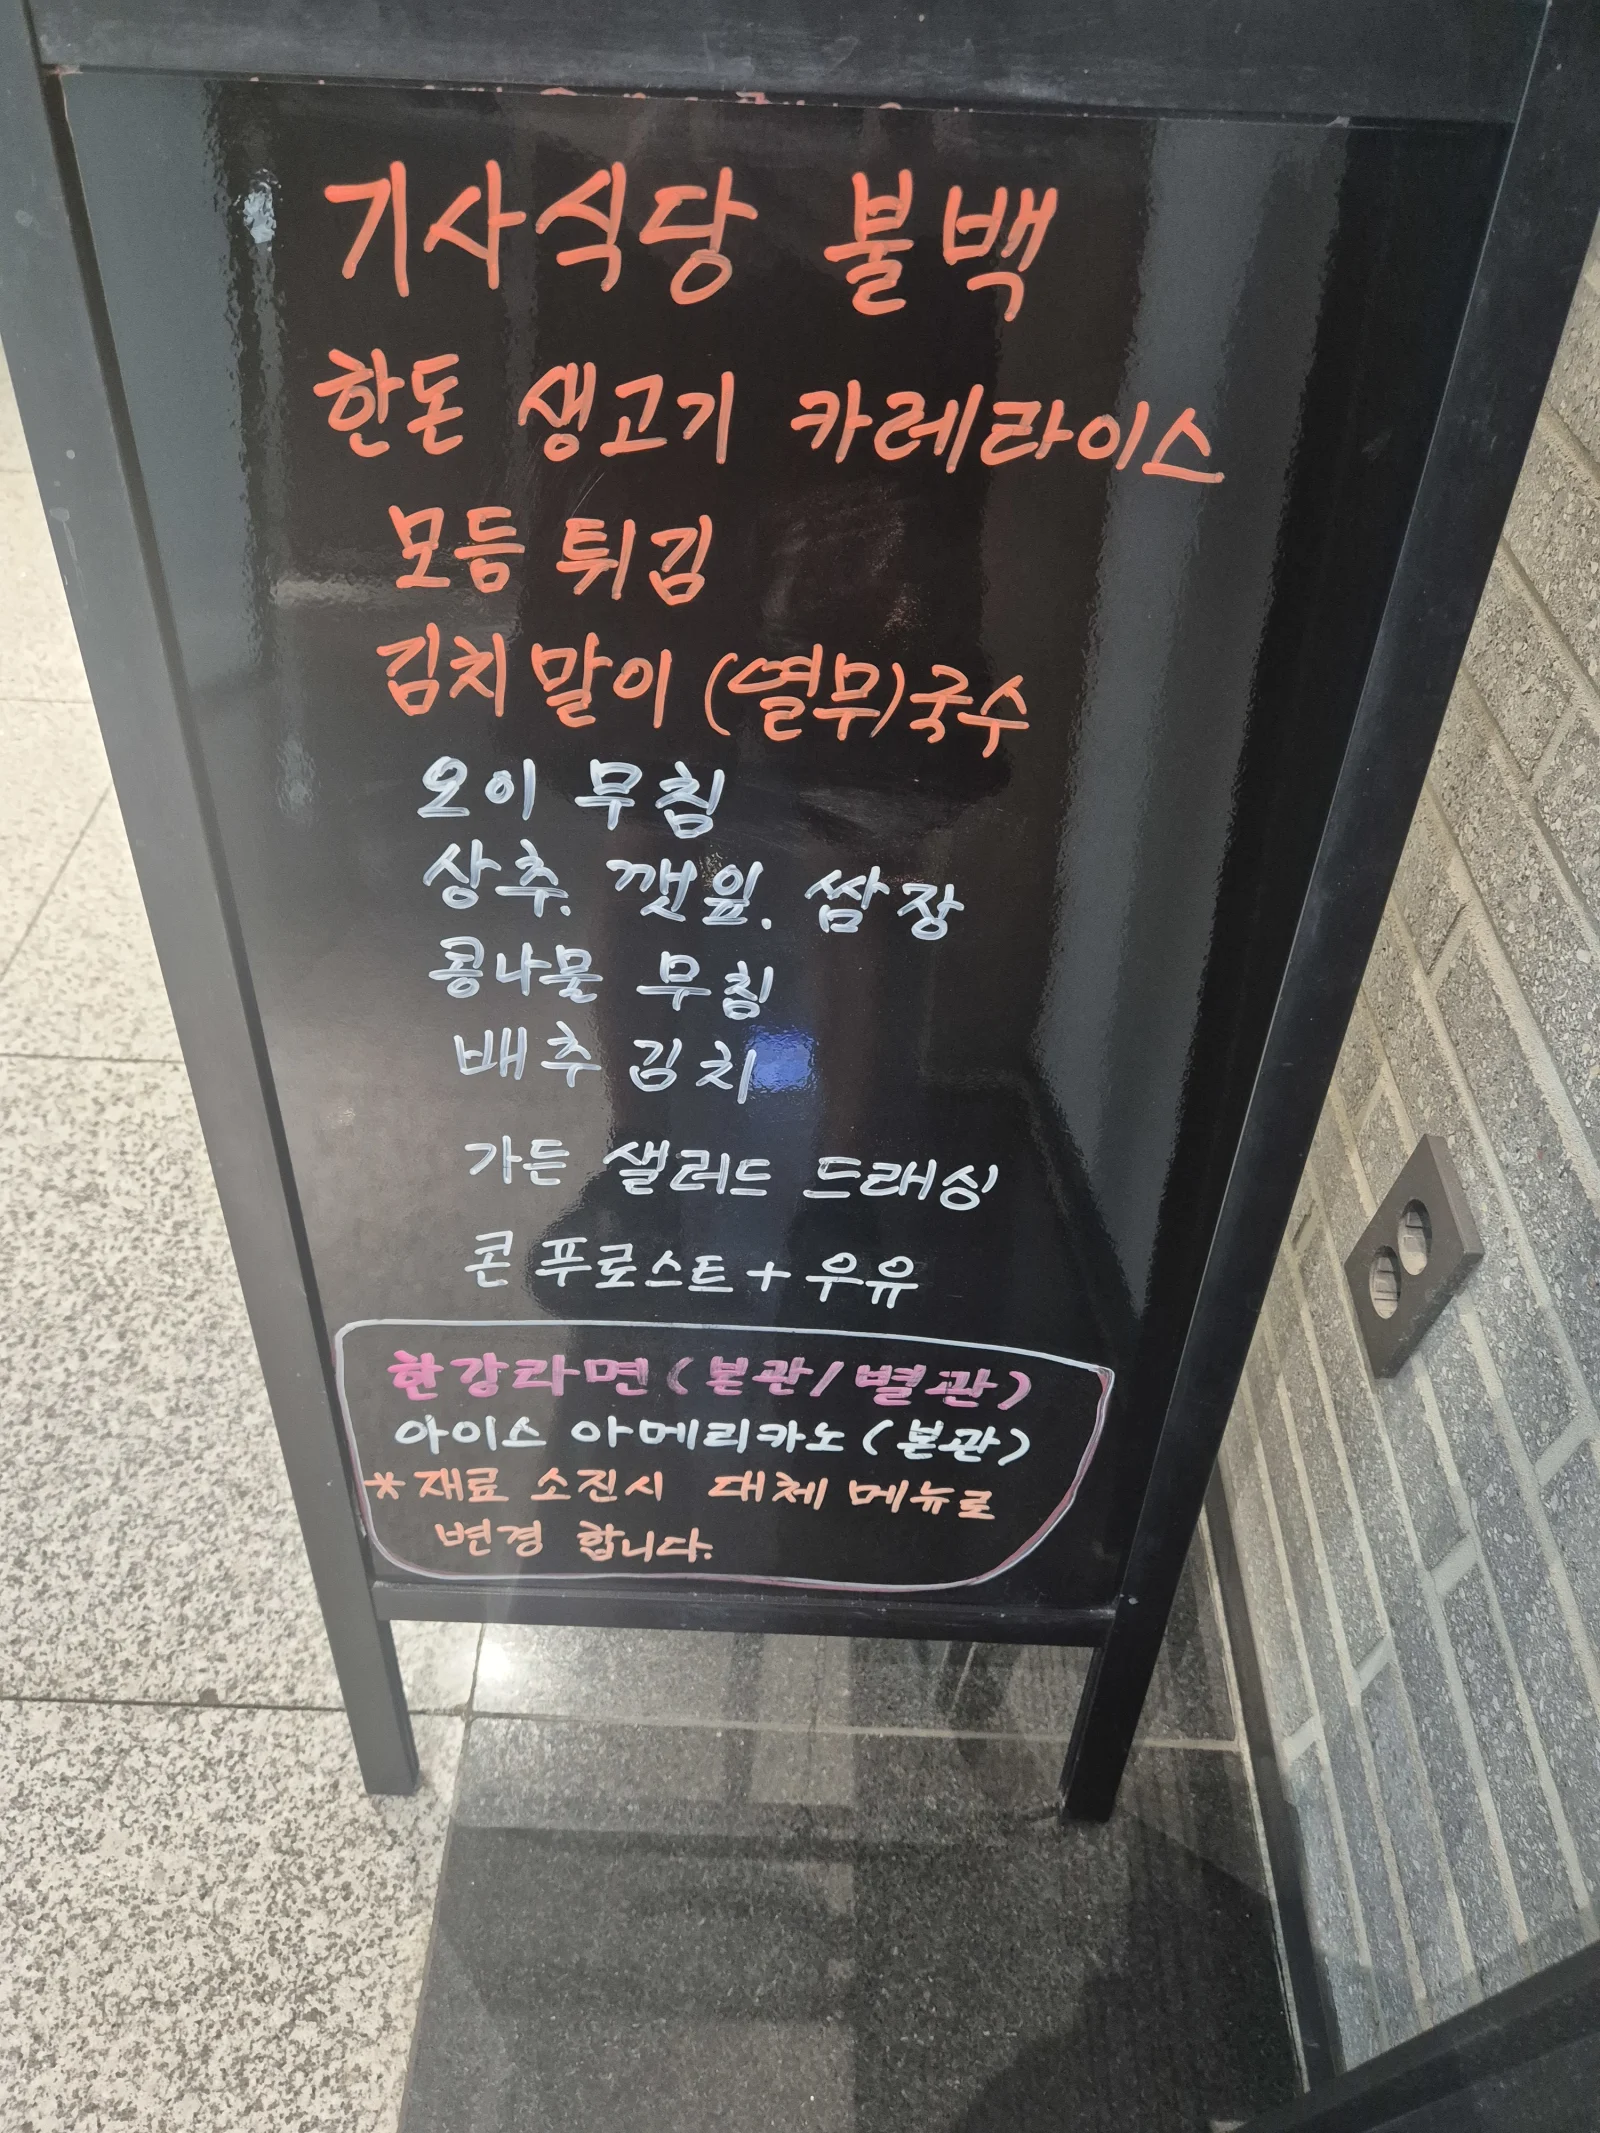 기사식당 불백
한돈 생고기 카레라이스
모듬 튀김
김치말이 (열무)국수
오이 무침
상추. 깻잎. 쌈장
콩나물 무침
배추 김치
가든 샐러드 드래싱
콘 푸로스트 + 우유
한강라면 (본관/별관)
아이스 아메리카노 (본관)
* 재료 소진시 대체 메뉴로
변경 합니다.